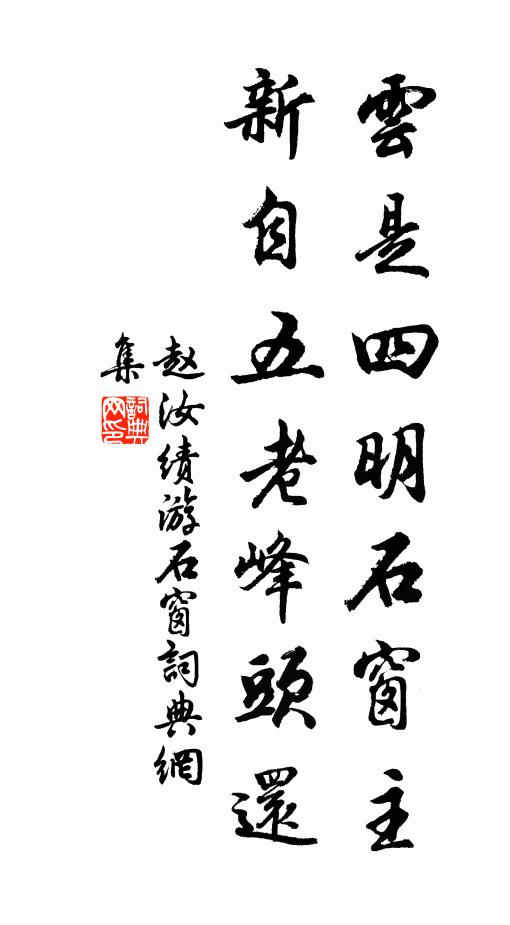 雲是四明石窗主
新自五老峰頭還
赵汝績游石窗詞典網
集
詞典
网印